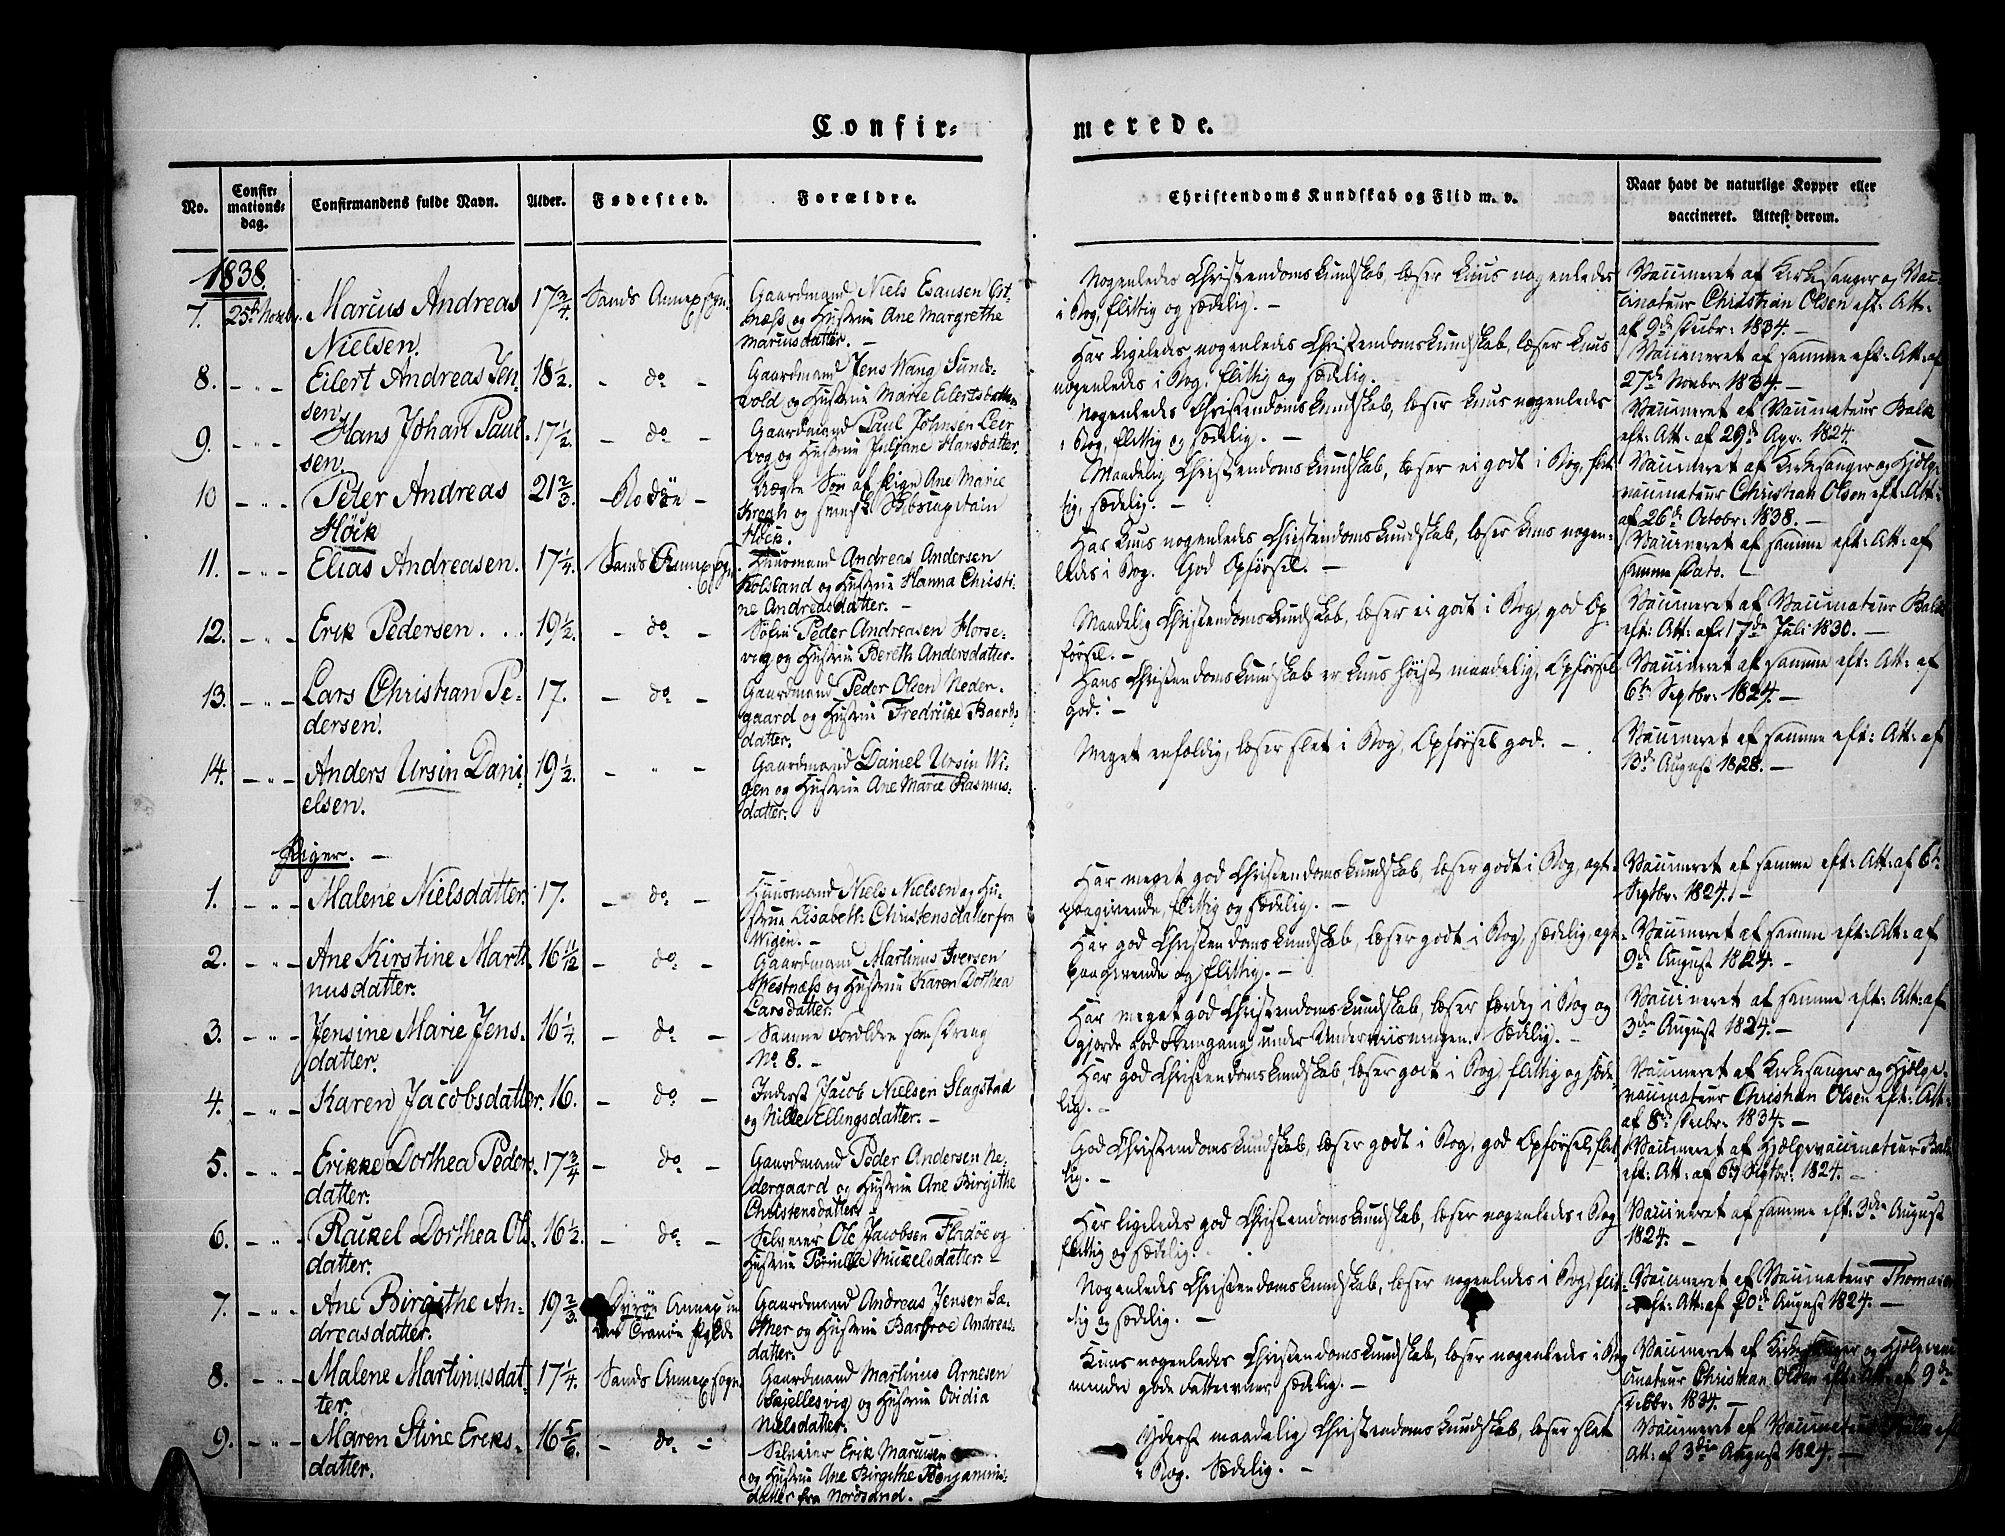 Confir-
merede.
No.
Confir-
mations-
dag.
Confirmandens fulde Navn.
Alder.
Fødested.
Forældre.
Christendoms Kundskab og Flid m. v.
Naar havt de naturlige Kopper eller
vaccineret. Attest derom.
1838.
7. 25de Novbr. Marcus Andreas
Nielsen.
17 3/4. Sands Annexsogn
Gaardmand Niels Esausen
næss og Hustrue Ane Margrethe
Marcusdatter. -
Nogenledes Christendomskundskab, læser kuns nogenledes
i Bog, flittig og sædelig. -
Vaccineret af Kirkesanger og Vac-
cinateur Christian Olsen eft: Att:
af 9de Decbr: 1834. -
8. - " - Eilert Andreas Jen
sen.
18 1/2. - do -
Gaardmand Jens Wang Sands-
vold og Hustrue Marie Eilertsdatter
Har ligeledes nogenledes Christendomskundskab, læser kuns
nogenledes i Bog, flittig og sædelig. -
Vaccineret af samme eft: Att: af
27de Novbr: 1834. -
9. - " - Hans Johan Paul-
sen.
17 1/2. - do -
Gaardmand Paul Johnsen Leer
vog og Hustrue Juliane Hansdatter.
Nogenledes Christendomskundskab, læser kuns nogenledes
i Bog, flittig og sædelig. -
Vaccineret af Vaccinateur Balk
eft: Att: af 29de Apr: 1824.
10 - " - Peder Andreas
Höck
21 2/3. Rodön -
Uægte Søn af Pige Ane Marie
Krogh og Skibscapitain
Höck.
Maadelig Christendomskundskab, læser ei godt i Bog, flit
tig, sædelig. -
Vaccineret af Kirkesanger og Hjelpe-
vaccinateur Christian Olsen eft: Att:
af 26de Octobr: 1838. -
11. - " - Elias Andreasen.
17 1/4. Sands Annexsogn.
Huusmand Andreas Andersen
Kolsland og Hustrue Hanna Christi-
ne Andreasdatter. -
Har kuns nogenledes Christendomskundskab, læser kuns nogen-
ledes i Bog. God Opførsel. -
Vaccineret af samme eft: Att: af
samme Dato. -
12. - " - Erik Pedersen.
19 1/2. - do -
Peder Andreasen Horse-
vig og Hustrue Bereth Andersdatter.
Maadelig Christendomskundskab, læser ei godt i Bog, god Op-
førsel. -
Vaccineret af Vaccinateur Balk
eft: Att: af 17de Juli 1830. -
13. - " - Lars Christian Pe-
dersen.
17. - do -
Gaardmand Peder Olsen Neder-
gaard og Hustrue Fredrikke Baards
datter.
Hans Christendomskundskab er kuns høist maadelig, Opførsel
god. -
Vaccineret af samme eft: Att: af
6te Septbr: 1824. -
14. - " - Anders Ursin Dani-
elsen.
19 1/2. - " -
Gaardmand Daniel Ursin Wi-
gen og Hustrue Ane Marie Rasmus-
datter.
Meget enfoldig, læser slet i Bog, Opførsel god. -
Vaccineret af samme eft: Att: af
13de August 1828. -
Piger. -
1. - " - Malene Nielsdatter. 17. - do -
Huusmand Niels Nielsen og Hu-
strue Lisabeth Christensdatter fra
Wigen. -
Har meget god Christendomskundskab, læser godt i Bog, agt-
paagivende, flittig og sædelig. -
Vaccineret af samme eft: Att: af 6te
Septbr: 1824. -
2. - " - Ane Kirstine Marti-
nusdatter.
16 11/12 - do -
Gaardmand Martinus Iversen
Westnæss og Hustrue Karen Dorthea
Larsdatter.
Har god Christendomskundskab, læser godt i Bog, sædelig, agt-
paagivende og flittig. -
Vaccineret af samme eft: Att: af
9de August 1824. -
3. - " - Jensine Marie Jens-
datter.
16 1/4. - do -
Samme Forældre som Dreng
No. 8. -
Har meget god Christendomskundskab, læser færdig i Bog og
gjorde god Fremgang under Underviisningen. Sædelig. -
Vaccineret af samme eft: Att: af
3die August 1824. -
4. - " - Karen Jacobsdatter. 16. - do -
Inderst Jacob Nielsen Slagstad
og Nille Ellingsdatter. -
Har god Christendomskundskab, læser godt i Bog, flittig og sæde-
lig. -
Vaccineret af Kirkesanger og Hjelpe-
vaccinateur Christian Olsen eft: Att:
af 8de Decbr: 1834. -
5. - " - Erikke Dorthea Peders
datter.
17 3/4 - do -
Gaardmand Peder Andersen Ne-
dergaard og Hustrue Ane Birgithe
Christensdatter. -
God Christendomskundskab, læser godt i Bog, god Opførsel, flit-
tig. -
Vaccineret af Hjelpevaccinateur Balk
eft: Att: af 6te Septbr: 1824. -
6. - " - Rachel Dorthea Ols
datter.
16 1/2. - do -
Selveier Ole Jacobsen Fladøe og
Hustrue Pernille Mickelsdatter. -
Har ligeledes god Christendomskundskab, læser nogenledes i Bog
flittig og sædelig.
Vaccineret af samme eft: 3die August
1824. -
7. - " - Ane Birgithe An-
dreasdatter.
19 2/3. Dyrøe Annex un
der Tranøe Præsteg.
Gaardmand Andreas Jensen Sæ-
ther og Hustrue Barbroe Andreas-
datter.
Nogenledes Christendomskundskab, læser nogenledes i Bog, flit-
tig og sædelig. -
Vaccineret af Vaccinateur Thomasen
eft: Att: af 20de August 1824. -
8. - " - Malene Martinusdat-
ter.
17 1/4. Sands Annexsogn
Gaardmand Martinus Arnesen
Skjellesvig og Hustrue Ovidia
Nielsdatter.
Kuns nogenledes Christendomskundskab, læser nogenledes i Bog
mindre gode Fatteevner, sædelig. -
Vaccineret af Kirkesanger og Hjelpevacci
nateur Christian Olsen eft: Att: af 9de
Decbr: 1834. -
9. - " - Maren Stine Eriks-
datter.
16 5/6. - do -
Selveier Erik Marcusen
og Hustrue Ane Birgithe Benjamins-
datter fra Nordsand. -
Yderst maadelig Christendomskundskab, læser slet
i Bog. Sædelig. -
Vaccineret af Vaccinateur Balk eft
Att: af 3die August 1824. -